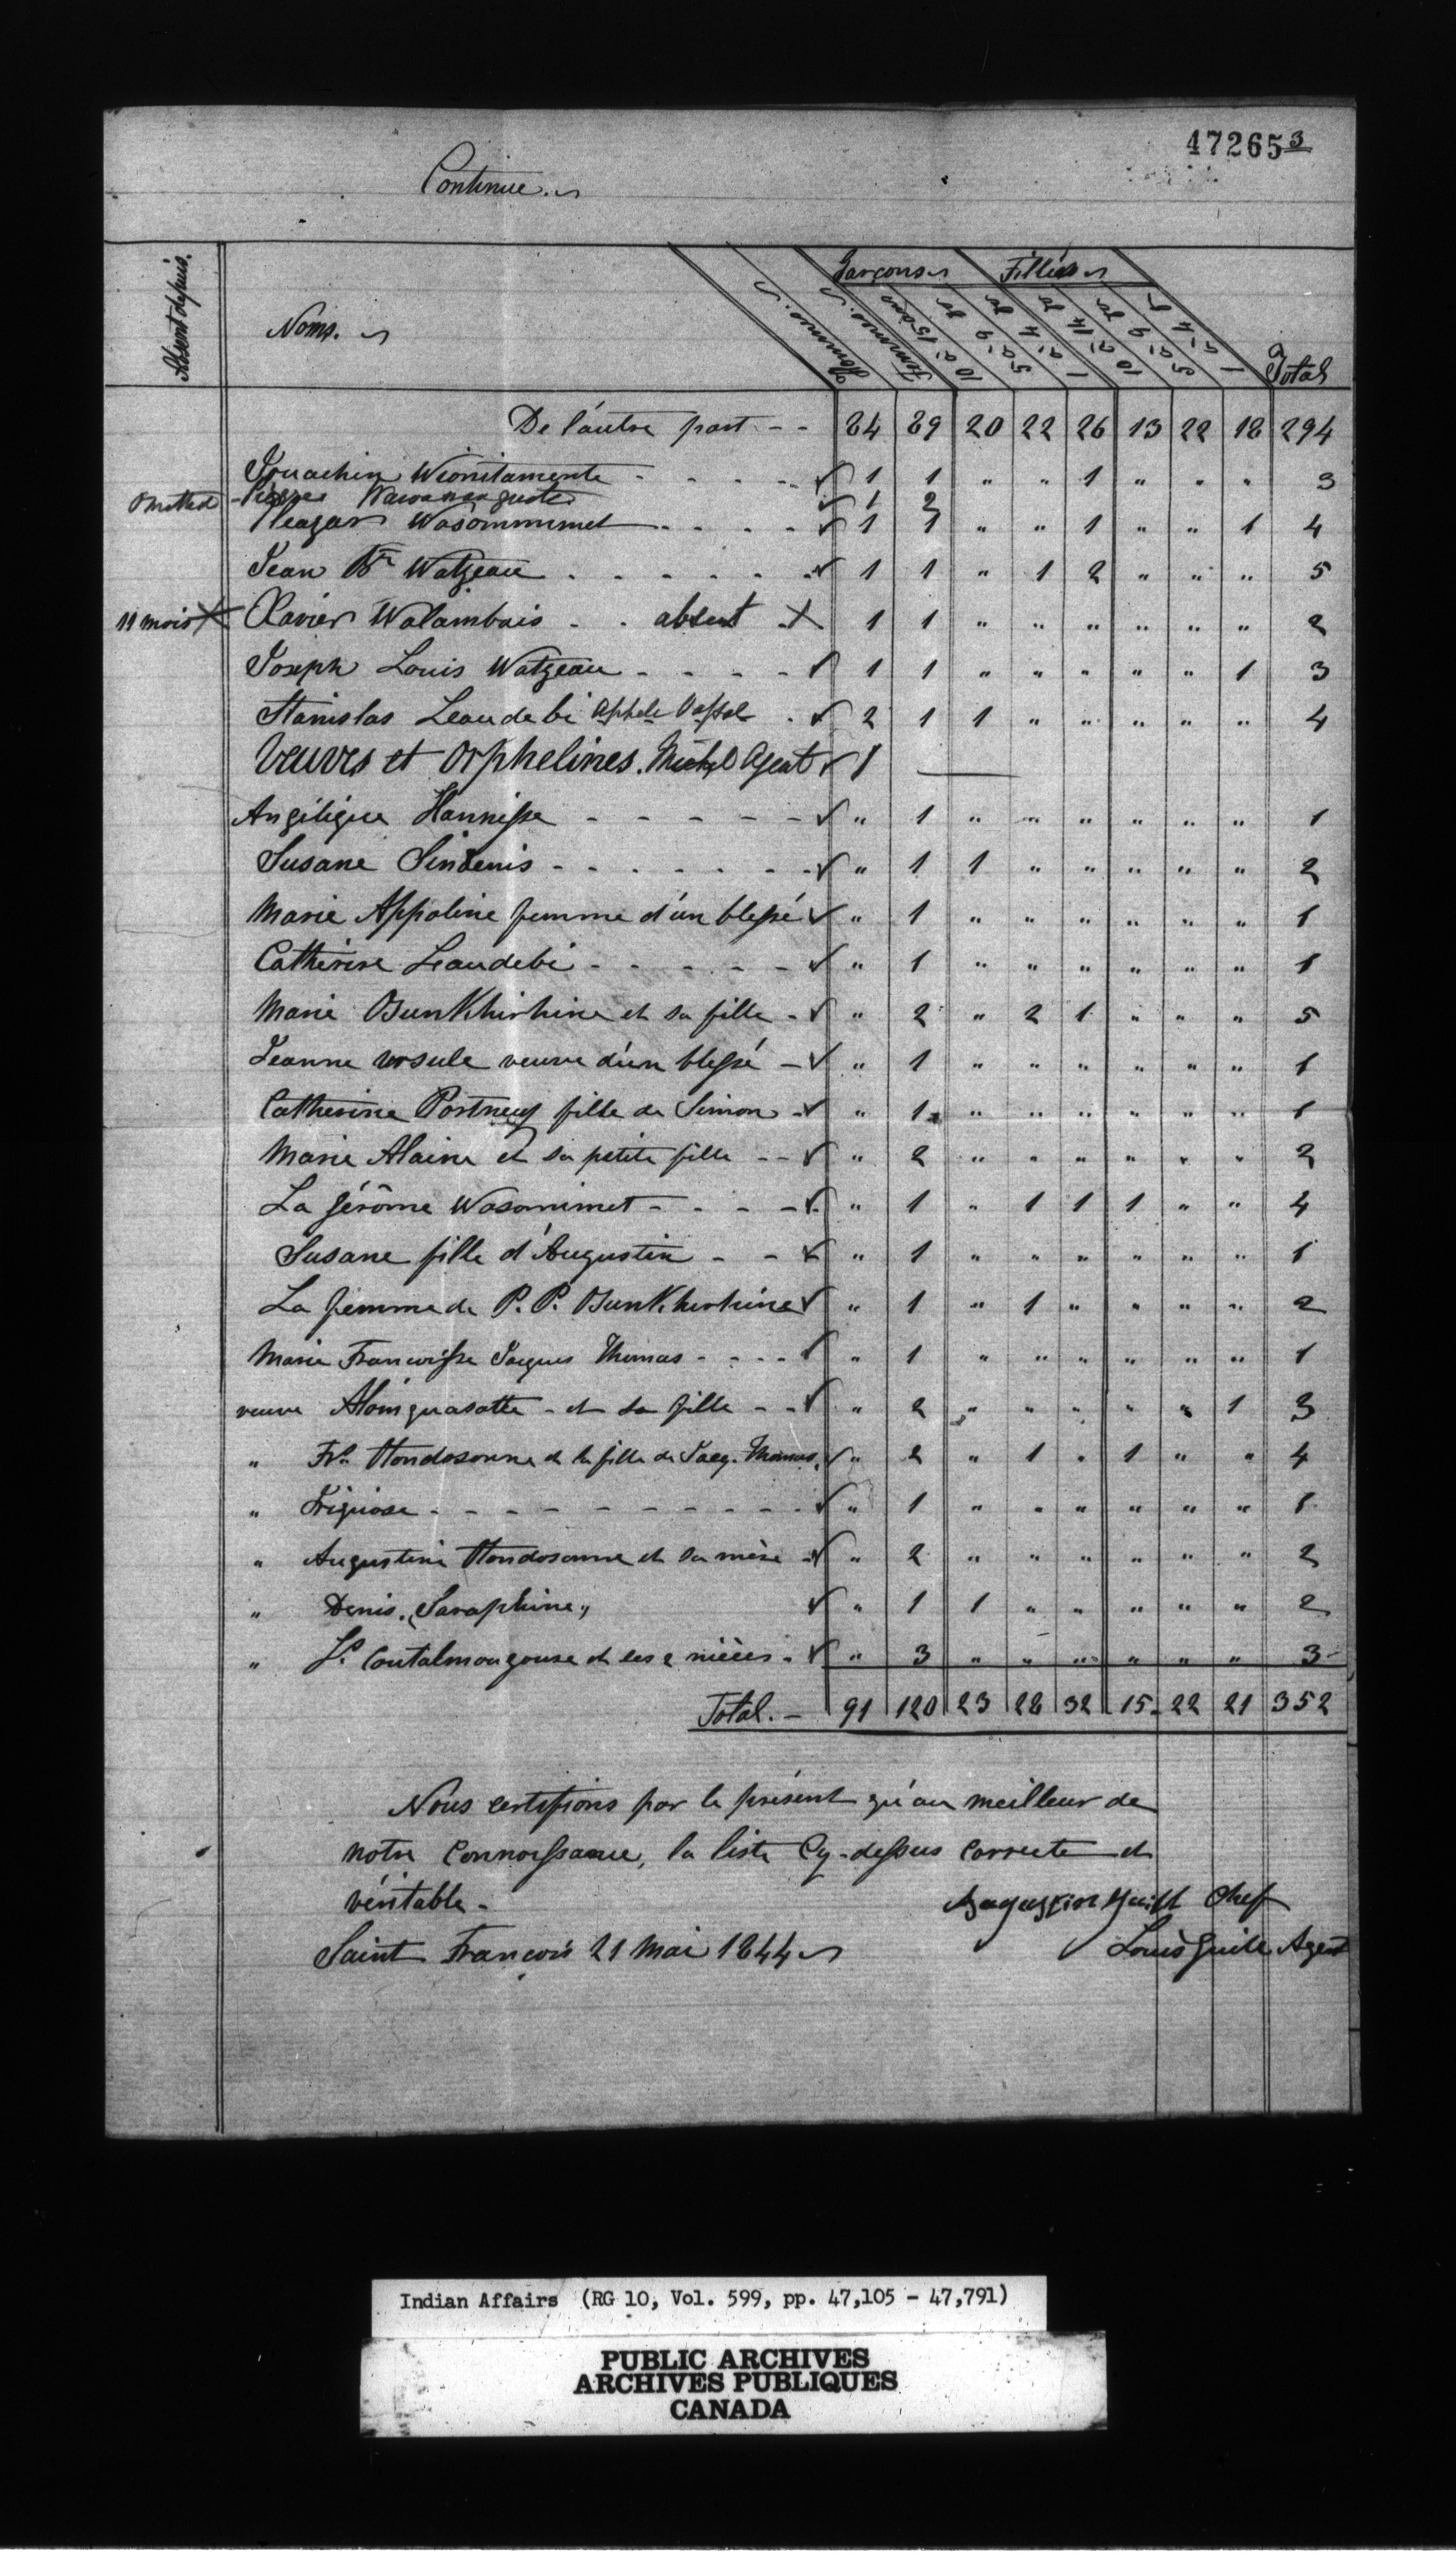 47265 3
Continue.
Absent depuis. Noms. Hommes. Femmes. Garçons 10 à 15 ans 5 à 9 do 1 à 4 do Filles 10 à 14 do 5 à 9 do 1 à 4 d Total
De l'autre part - - 84 89 20 22 26 13 22 18 294
Jouachin Wionitamente - - - - - ✓ 1 1 " " 1 " " " 3
Omitted ✓ 1 2
Eleazar Wasommimet - - - - ✓ 1 1 " " 1 " " 1 4
Jean Bte Watzeau - - - - - - ✓ 1 1 " 1 2 " " " 5
11 mois X Xavier Walambois - - absent - X 1 1 " " " " " " 2
Joseph Louis Watzeau - - - - ✓ 1 1 " " " " " 1 3
Stanislas Leaudebi - ✓ 2 1 1 " " " " " 4
Veuves et Orphelines. Michel Agent ✓ 1
Angélique Hannisse - - - - - ✓ " 1 " " " " " " 1
Susane Sindenis - - - - - - - ✓ " 1 1 " " " " " 2
Marie Appoline femme d'un blessé ✓ " 1 " " " " " " 1
Catherine Leaudebi - - - - - ✓ " 1 " " " " " " 1
Marie Osunkhirhine et sa fille - ✓ " 2 " 2 1 " " " 5
Jeanne ursule veuve d'un blessé - ✓ " 1 " " " " " " 1
Catherine Portneuf fille de Simon - ✓ " 1 " " " " " " 1
Marie Alaine et sa petite fille - - ✓ " 2 " " " " " " 2
La Jérôme Wasomimet - - - - ✓ " 1 " 1 1 1 " " 4
Susane fille d'Augustin - - ✓ " 1 " " " " " " 1
La femme de P. P. Osunkhirhine ✓ " 1 " 1 " " " " 2
Marie Francoisse Jacques Thomas - - - - ✓ " 1 " " " " " " 1
veuve et sa fille - - ✓ " 2 " " " " " 1 3
" Frs Nondosonne et la fille de Jacq. Thomas. ✓ " 2 " 1 " 1 " " 4
" - - - - - - - - - - ✓ " 1 " " " " " " 1
" Augustine Nondosonne et sa mère - ✓ " 2 " " " " " " 2
" Denis. (Saraphine,) ✓ " 1 1 " " " " " 2
" et ses 2 nièces - ✓ " 3 " " " " " " 3
Total. - 91 120 23 28 32 15 22 21 352
Nous certifions par le présent qu'au meilleur de
notre Connoissance, la liste Cy-dessus correcte et
véritable -
Chef
Saint Francois 21 Mai 1844
Louis Agent
Indian Affairs (RG 10, Vol. 599, pp. 47,105 - 47,791)
PUBLIC ARCHIVES
ARCHIVES PUBLIQUES
CANADA